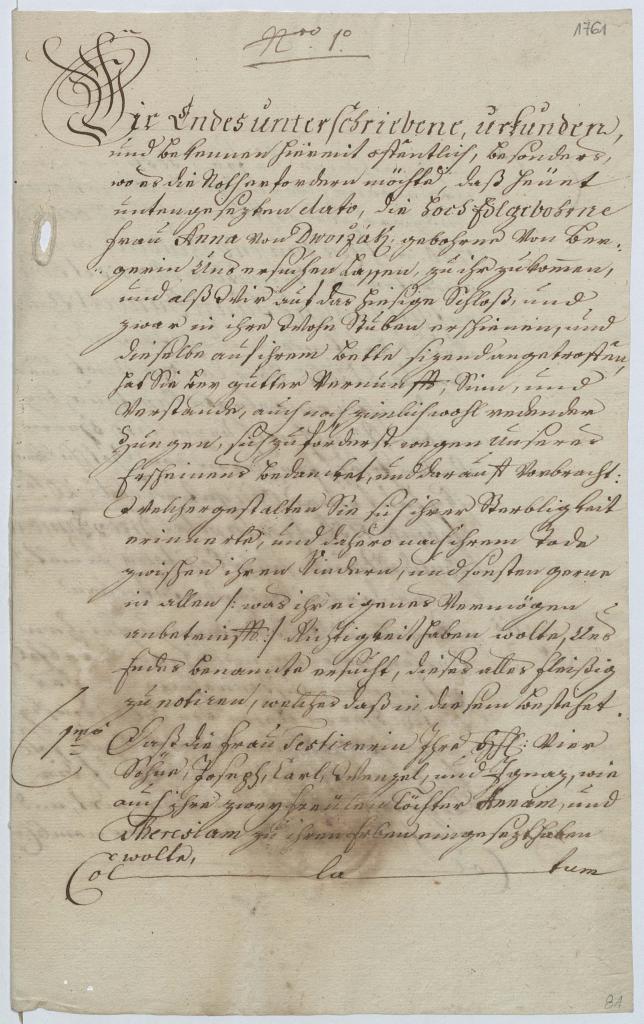 1761
Nro. 1o.
Wir Endes unterschriebene, urkunden,
und bekennen hiermit offentlich, besonders,
wo es die Noth erfordern möchte, daß heünt
untengesezten dato, die hoch Edlgebohrne
Frau Anna von Dworžák, gebohrne von Ber-
gerin Uns ersuchen lassen, zu ihr zukommen,
und alß Wir auf das hiesige Schloß, und
zwar in ihre Wohn Stuben erschienen, und
dieselbe auf ihrem bette sizend angetroffen,
hat Sie bey gutter Vernunfft, Sinn, und
Verstande, auch noch zimlich wohl redender
Zungen, sich zuforderst wegen Unseres
Erscheinens bedancket, und darauff Vorbracht:
Welchergestalten Sie sich ihrer Sterbligkeit
erinnerte, und dahero nach ihrem Tode
zwischen ihren Kindern, und sonsten gerne
in allen /: was ihr eigenes Vermögen
anbetrifft :/ Richtigkeit haben wolte, Uns
Endes benannte ersucht, dieses alles fleißig
zu notiren, welches dañ in diesem bestehet.
1mo Daß die Frau Testirerin Ihre Vier
Söhne, Joseph, Carl, Wenzel, und Ignaz, wie
auch ihre zwey Freülen Töchter Annam, und
Theresiam zu ihren Erben eingesezt haben
wolte,
Col la tum
81